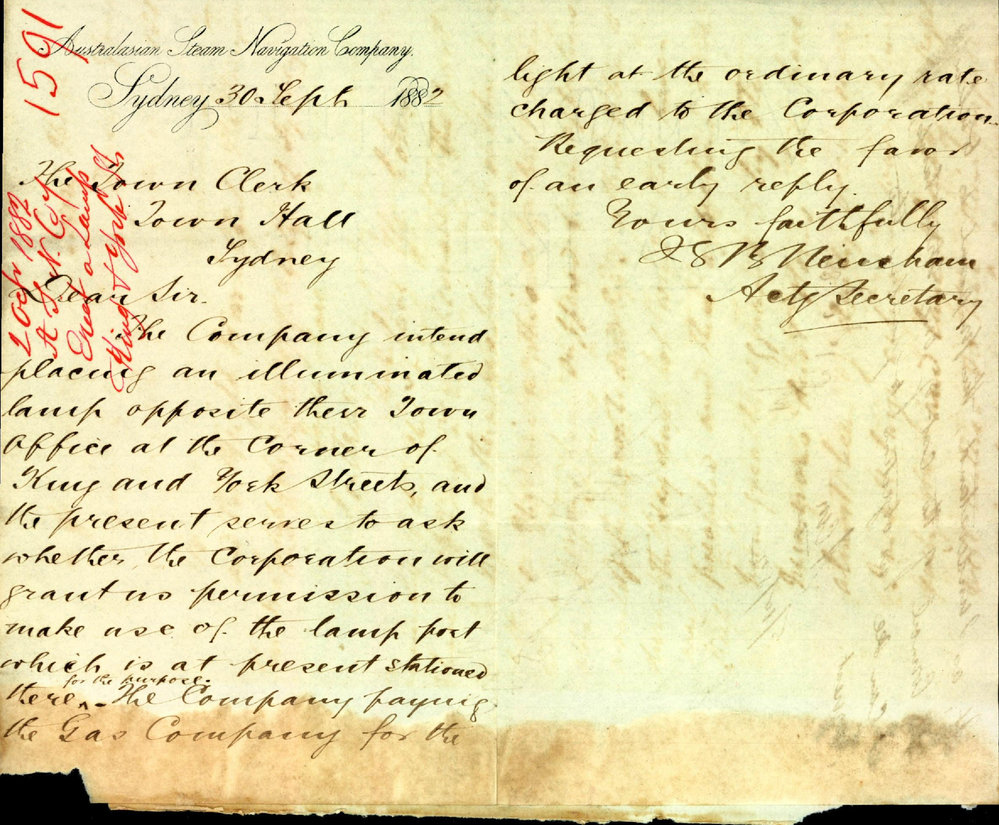 1591
Australasian Steam Navigation Company.
Sydney 30 Sept 1882
2 Oct 1882
A. S. N. Coy
Erect a Lamp
King & York St
The Town Clerk
Town Hall
Sydney
Dear Sir.
The Company intend
placing an illuminated
lamp opposite their Town
Office at the Corner of
King and York Streets, and
the present serves to ask
whether the Corporation will
grant us permission to
make use of the lamp post
which is at present stationed
there ^ for the purpose. - The Company paying
the Gas Company for the
light at the ordinary rate
charged to the Corporation.
Requesting the favor
of an early reply.
Yours faithfully
Actg Secretary